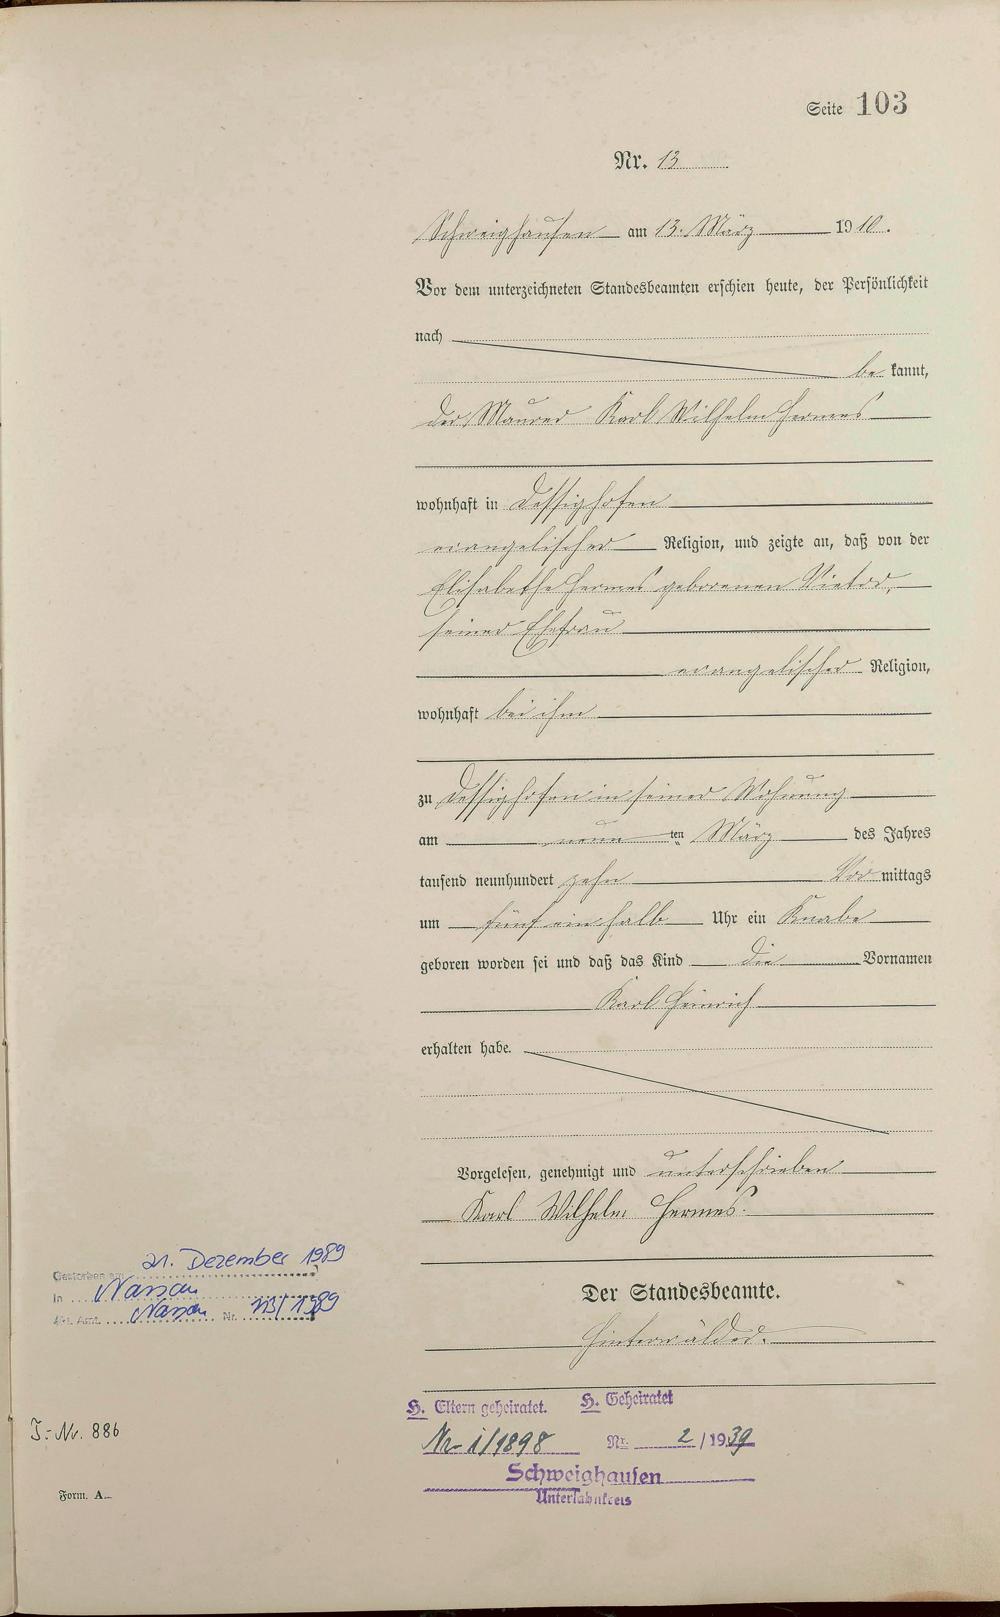 Seite 103
Nr. 13
Schweighausen am 13. März 1910.
Vor dem unterzeichneten Standesbeamten erschien heute, der Persönlichkeit
nach
be kannt,
der Maurer Karl Wilhelm Hermes
wohnhaft in Dessighofen
evangelischer Religion, und zeigte an, daß von der
Elisabethe Hermes geborenen Vietor,
seiner Ehefrau
evangelischer Religion,
wohnhaft bei ihm
zu Dessighofen in seiner Wohnung
am neun ten März des Jahres
tausend neunhundert zehn Vor mittags
um fünf ein halb Uhr ein Knabe
geboren worden sei und daß das Kind die Vornamen
Karl Heinrich
erhalten habe.
Vorgelesen, genehmigt und unterschrieben
Karl Wilhelm Hermes.
Der Standesbeamte.
Hinterwälder.
Gestorben am 21. Dezember 1989
in Nassau
St. Amt. Nassau Nr. 113/1989
H. Eltern geheiratet. H. Geheiratet
Nr 1/1898 Nr. 2/1939
Schweighausen
Unterlahnkreis
J.-Nr. 886
Form. A.